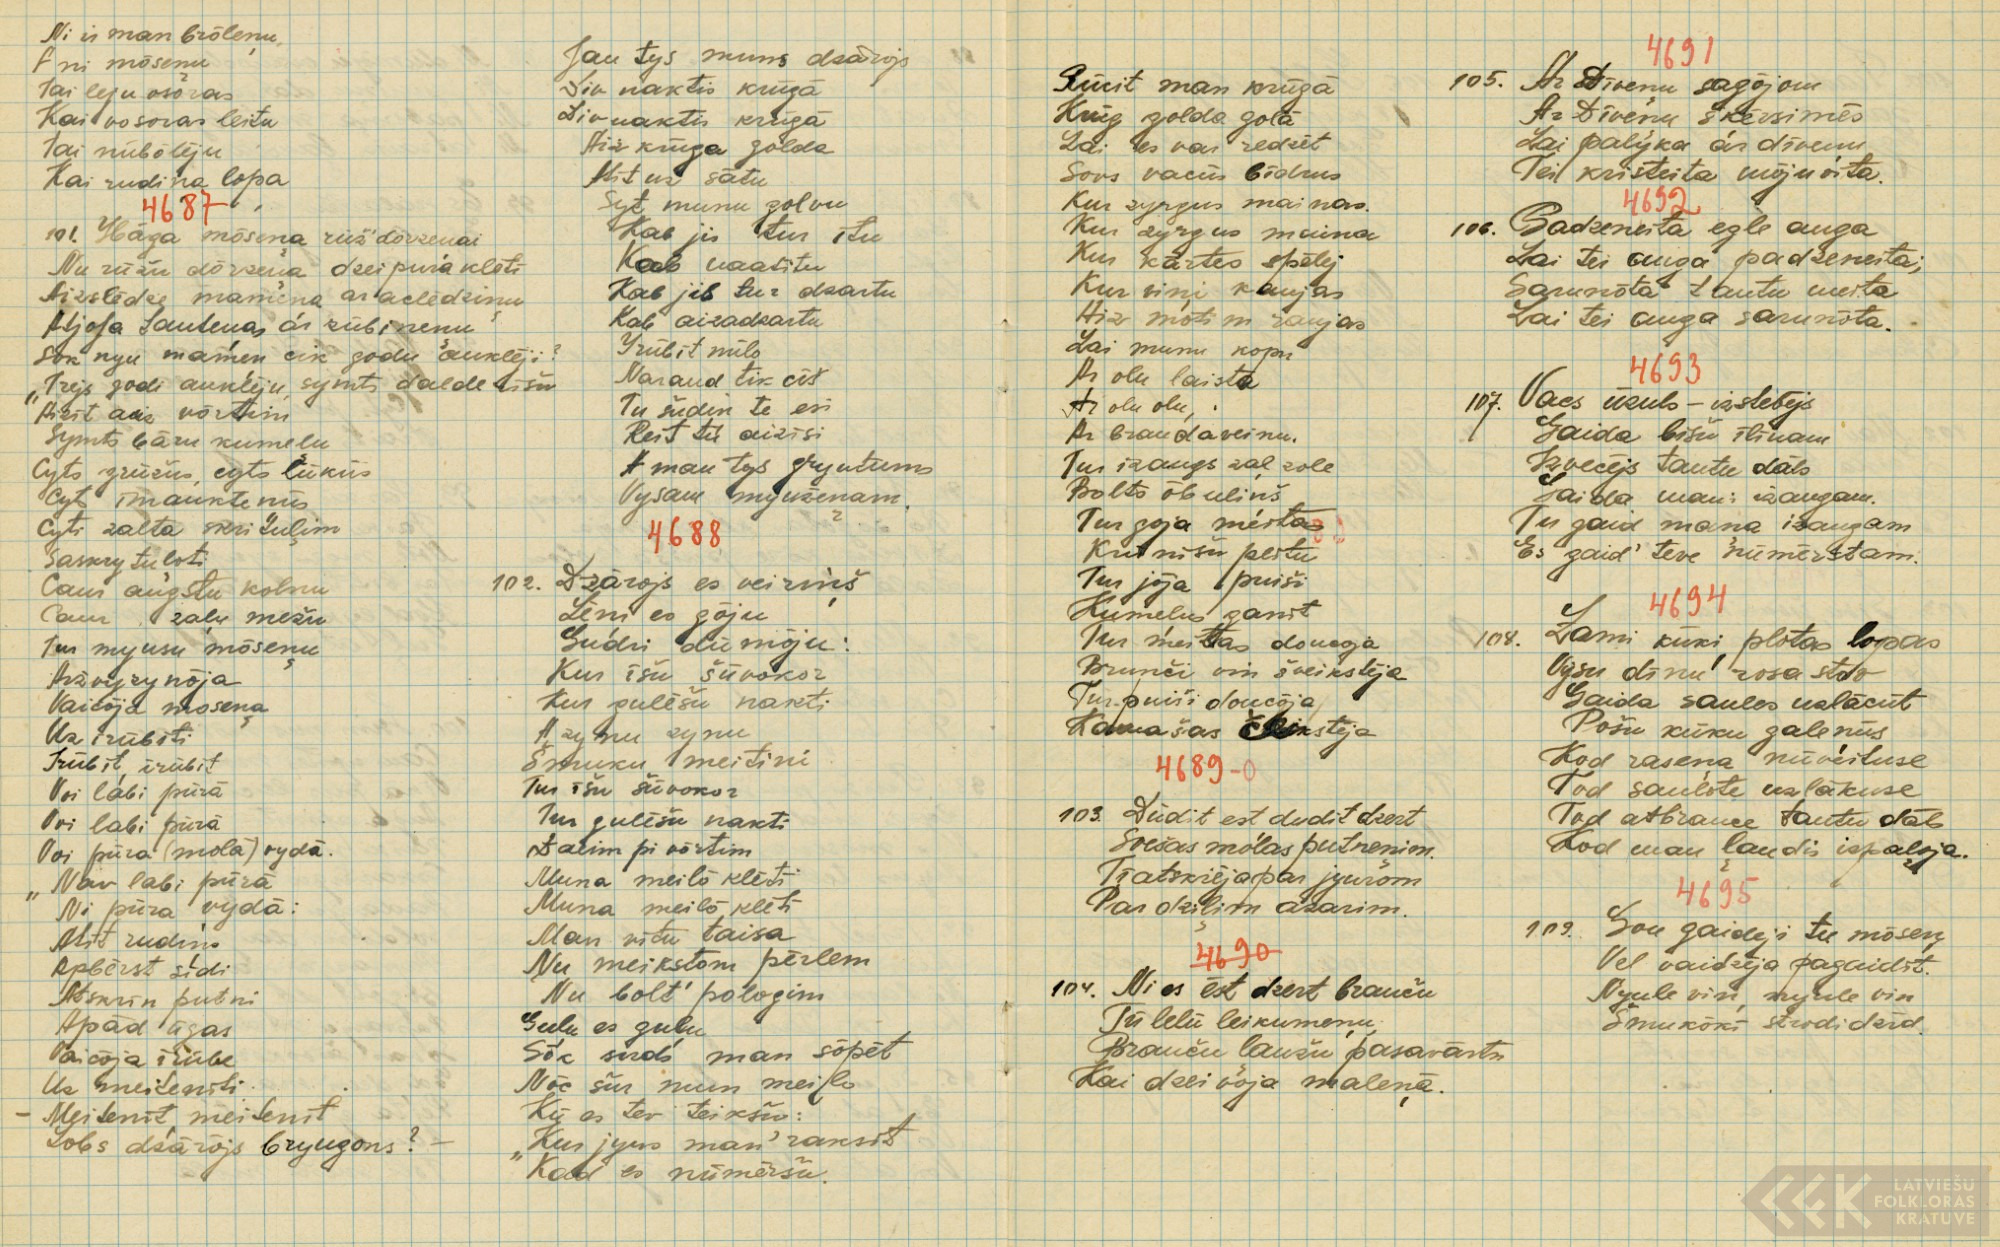 Ni is man brōleņu
A ni mōseņu
Tai leju osoras
Kai vosoras leitu
Tai nūbōlēju
Kai rudiņa lopa
4687
101. Hāga mōseņa rūž dōrzenai
Nu rūžu dōrzeņa dzei pura klēti
Aizslēdze mameņa ar aclēdziņu
Atjoja tauteņas ār zūbineņu
Sok nyu mamen cik godu auklēji?
„Trejs godi auklēju, symts dalde tēšu
Aizīt aiz vōrtim
Symts bāru kumeļu
Cyts grūžus, cyts lūkūs
Cyt īmauktenūs
Cyti zalta skrituļim
Saskrytuļoti
Caur augstu kolnu
Caur zaļu mežu
Tur myusu mōseņu
Aizvyzynōja
Vaicōja mōseņa
Uz irūbīti
Irūbit, irūbit
Voi labi pūrā
Voi labi pūrā
Voi pūra (molā) vydā.
„Nav labi pūrā
Ni pūra vydā:
Atīt rudiņs
Apbērst sīdi
Atskrin putni
Apād ūgas
Vaicōja irūbe
Uz meitenīti
– Meitenīt, meitenīt
Lobs dzārōjs bryugons? –
Jau tys muns dzārōjs
Div naktis krūgā
Div naktis krūgā
Aiz krūga golda
Atīt uz sātu
Syt munu golvu
Kab jis tur ītu
Kab naatītu
Kab jis tur dzartu
Kab aizadzartu
Irūbīt mīlo
Naraud tik cīš
Tu šudiņ te esi
Reit tu aizisi
A man tys gryutums
Vysam myuženam.
4688
102. Dzārōjs es veiriņš
Lēni es gōju
Gudri dūmōju:
Kur īšu šūvokor
Kur gulēšu nakti
A zynu zynu
Šmuku meitiņi
Tur īšu šūvokor
Tur gulēšu nakti
Dazim pi vōrtim
Muna meilō klēti
Muna meilō klēti
Man vītu taisa
Nu meikstom pērlem
Nu bolt' pologim
Guļu es guļu
Sōk sirdi man sōpēt
Nōc šur mun meiļo
Kū es tev teikšu:
„Kur jyus man' raksit
„Kad es nūmēršu.
Rūcit man krūgā
Krūg golda golā
Lai es var redzēt
Sovs vacūs bīdrus
Kur zyrgus mainas.
Kur zyrgus maina
Kur kārtes spēlej
Kur vini kaujas
Aiz motim raujas
Lai munu kopu
Ar olu laista
Ar olu olu,
Ar brandaveinu.
Tur izaugs zaļ zole
Bolts ōbuliņš
Tur goja meitas
Krūnīšu peitu
Tur jōja puiši
Kumeļus ganit
Tur meitas doncoja
Brunči vin šveikstēja
Tur puiši doncōja
Kamašas čeikstēja
4689-0
103. Dūdit est dudit dzert
Svešas mōlas putnenim.
Tī atskrēja par jyurom
Par dziļim azarim.
4690
104. Ni es ēst dzert braucu
Tū lelū leikumeņu
Braucu laužu pasavārtu
Kai dzeivōja maleņā.
4691
105. Ar Dīveņu sagōjom
Ar Dīveņu škērsimēs
Lai palyka ār dīveņu
Tei kristeita mōjvīta.
4692
106. Padzeneita egle auga
Lai tei auga padzeneita;
Sarunōta tautu meita
Lai tei auga sarunōta.
4693
107. Vacs ūzuls – izstebējs
Gaida bišu īlinam
Izvecējs tautu dāls
Gaida mani izaugam.
Tu gaid' mana izaugam
Es gaid' teve nūmērstam.
4694
108. Zami kūki, plotas lopas
Vysu dīnu rosa stāv
Gaida saules uzlācūt
Pošu kūku galenūs
Kod raseņa nūveituse
Tod sauleite uzlākuse
Tod atbrauce tautu dāls
Kod man ļaudis izpaļoja.
4695
109. Sou gaideji tu mōseņ
Vel vaidzēja pagaidīt.
Nyule vin, nyule vin
Šmukōki strodi dzīd.
LATVIEŠU
FOLKLORAS
KRĀTUVE